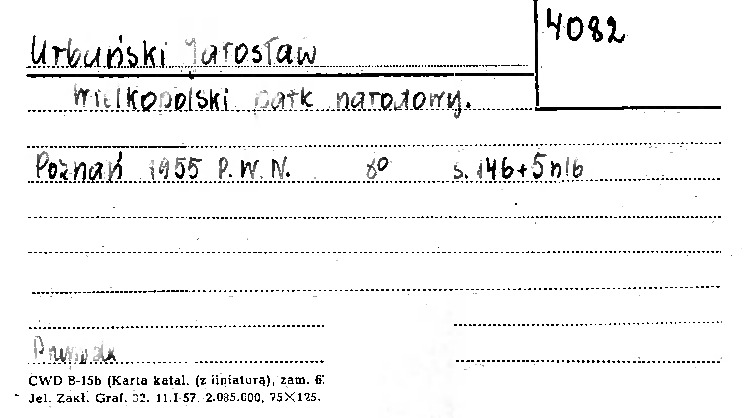 4082
Urbański Jarosław
Wielkopolski park narodowy.
Poznań 1955 P.W.N. 8° s. 146+5nlb
CWD B-15b (Karta katal. (z liniaturą), zam. 6.
Jel. Zakł. Graf. 32. 11.I-57. 2.085.000, 75×125.